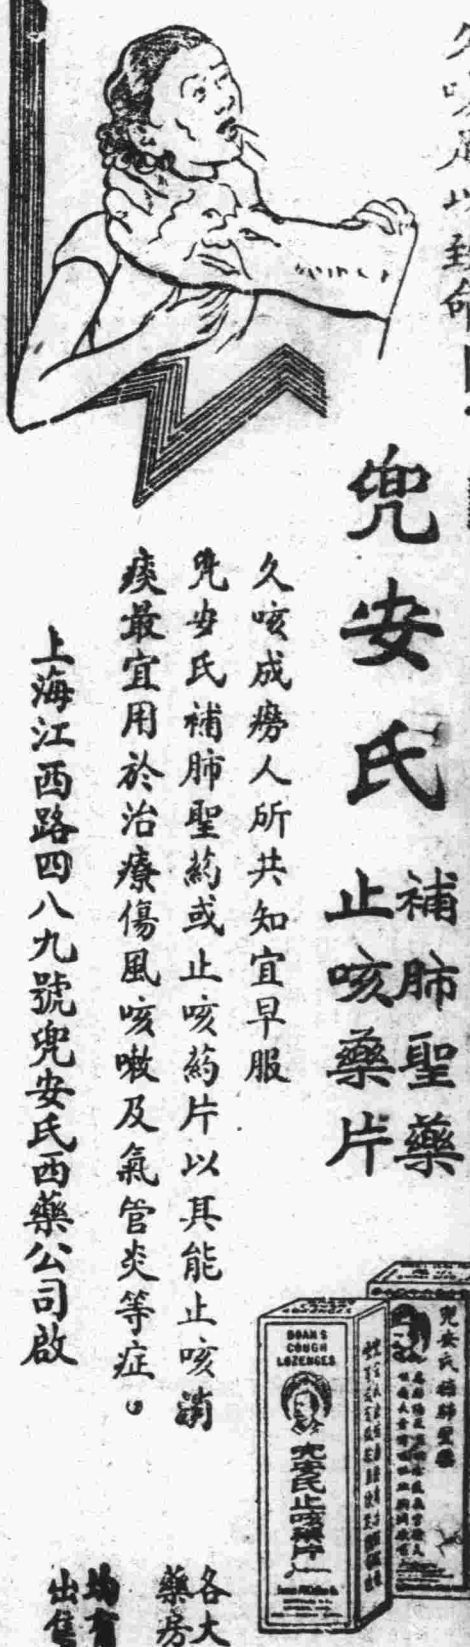 久咳足以致命
兜安氏
補肺聖藥
止咳藥片
久咳成癆人所共知宜早服
兜安氏補肺聖药或止咳药片以其能止咳消
痰最宜用於治療傷風咳嗽及氣管炎等症。
上海江西路四八九號兜安氏西藥公司啟
兜安氏補肺聖藥
DOAN'S
COUGH
LOZENGES
兜安氏止咳藥片
各大
藥房
均有
出售